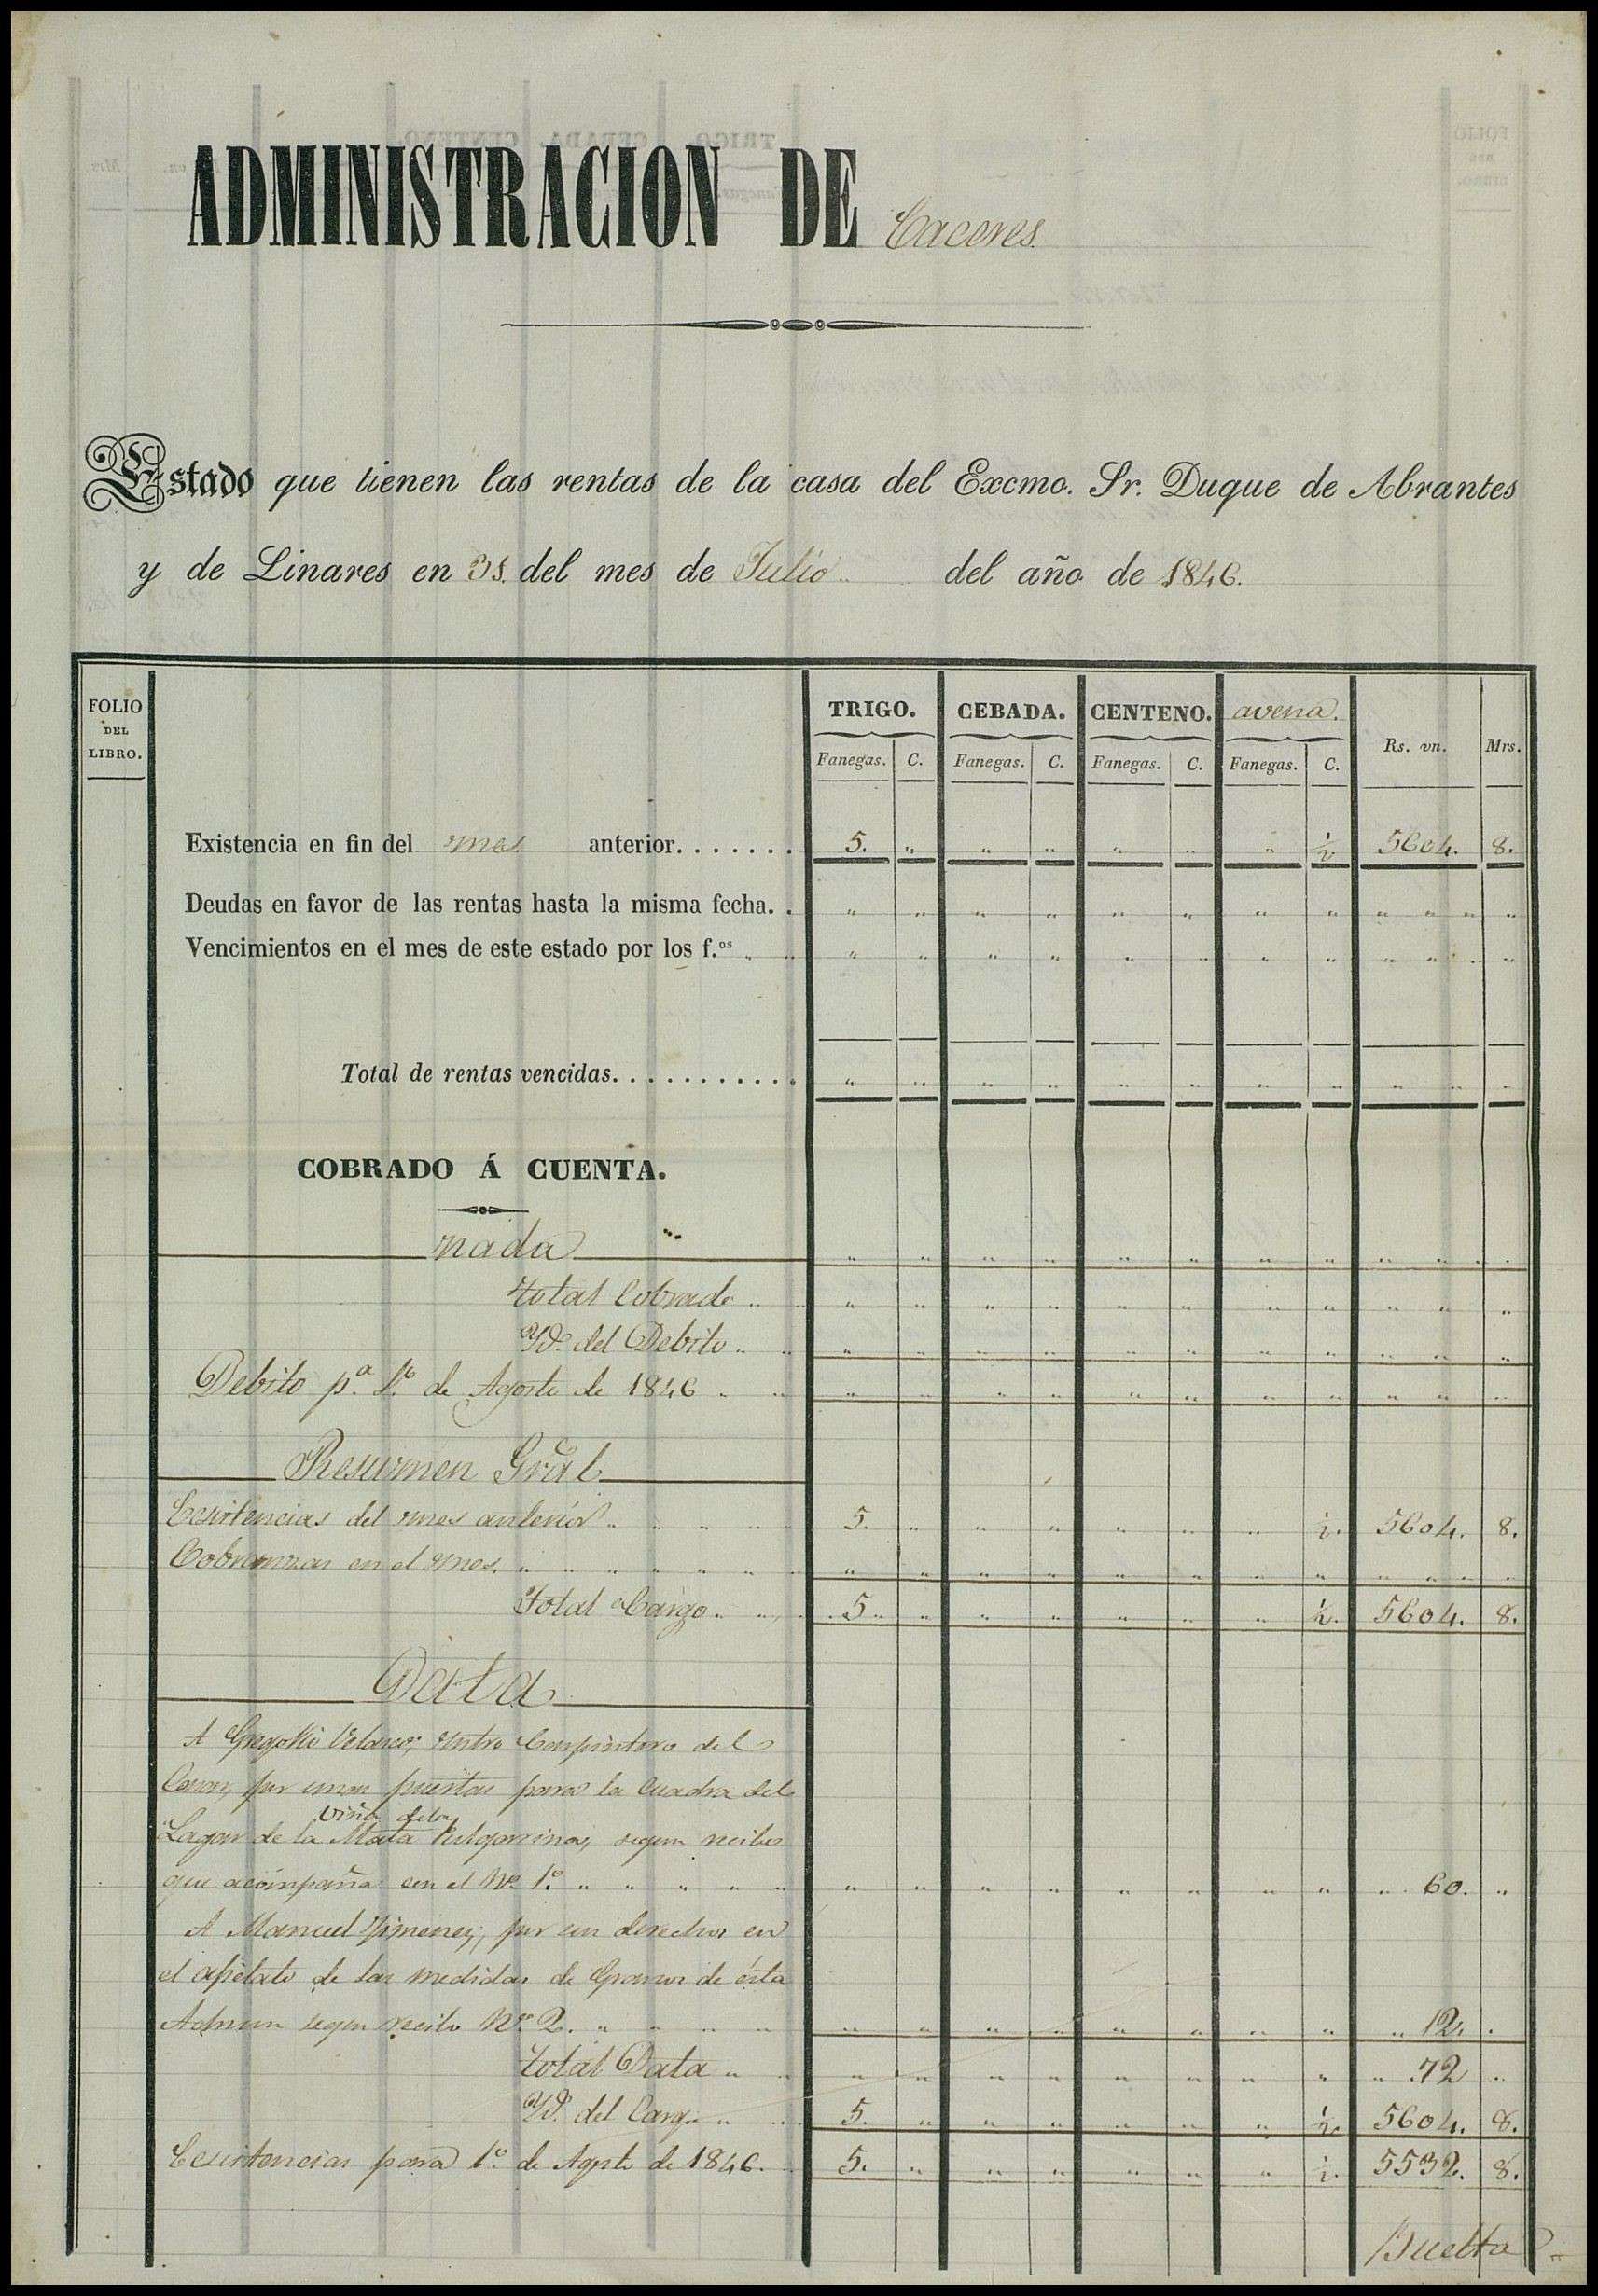 ADMINISTRACION DE Caceres.
Estado que tienen las rentas de la casa del Excmo. Sr. Duque de Abrantes
y de Linares en 31. del mes de Julio .. del año de 1846.
FOLIO DEL LIBRO. TRIGO. CEBADA. CENTENO. avena. Rs. vn. Mrs.
Fanegas. C. Fanegas. C. Fanegas. C. Fanegas. C.
Existencia en fin del mes anterior....... 5. „ „ „ „ „ „ ½ 5604. 8.
Deudas en favor de las rentas hasta la misma fecha. . „ „ „ „ „ „ „ „ „ „ „ „
Vencimientos en el mes de este estado por los f.os „ „ „ „ „ „ „ „ „ „ „ „ „ „
Total de rentas vencidas........... „ „ „ „ „ „ „ „ „ „ „
COBRADO Á CUENTA.
nada „ „ „ „ „ „ „ „ „ „ „
total Cobrado „ „ „ „ „ „ „ „ „ „ „ „
Yd. del Debito „ „ „ „ „ „ „ „ „ „ „ „ „
Debito p.a 1.o de Agosto de 1846 „ „ „ „ „ „ „ „ „ „ „ „ „
Resumen Gral
Cesistencias del mes anterior „ „ „ „ „ 5. „ „ „ „ „ „ ½. 5604. 8.
Cobranzas en el mes. „ „ „ „ „ „ „ „ „ „ „ „ „ „ „ „ „ „ „
Total Cargo „ „ 5 „ „ „ „ „ „ ½. 5604. 8.
Data
A Gregorio Velasco, mtro Carpintero del
por unas puertas para la Cuadra del
viña dela
Lagar de la Mata segun recibo
que acompaña con el No. 1o. „ „ „ „ „ „ „ „ „ „ „ „ „ „ 60. „
A Manuel Ximenez, por sus derechos en
el afielato de las medidas de Granos de ésta
Admon segun recibo No. 2. „ „ „ „ „ „ „ „ „ „ „ „ „ 12. .
total Data „ „ „ „ „ „ „ „ „ „ „ 72 „
Yd. del Cargo „ „ 5. „ „ „ „ „ „ ½ 5604. 8.
Cesistencias para 1o. de Agosto de 1846. „ 5. „ „ „ „ „ „ ½. 5532. 8.
Buelta